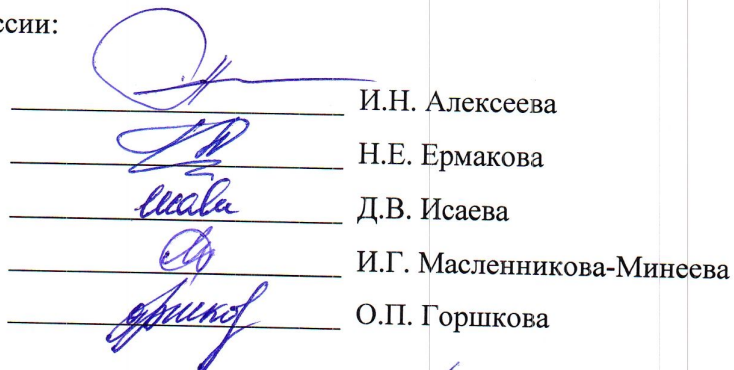 ссии:
И.Н. Алексеева
Н.Е. Ермакова
Д.В. Исаева
И.Г. Масленникова-Минеева
О.П. Горшкова